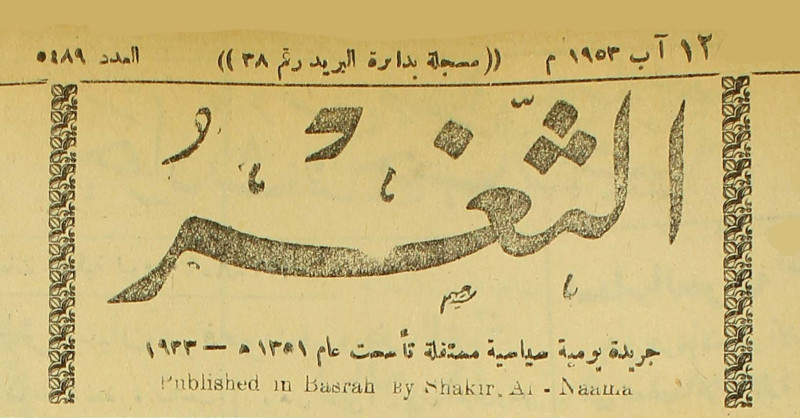 ١٢ آب ١٩٥٣ م ((مسجلة بدائرة البريد رقم ٣٨)) العدد ٥٤٨٩
الثّغر
جريدة يومية سياسية مستقلة تأسست عام ١٣٥١ ه — ١٩٣٣
Published in Basrah By Shakir. Al - Naama